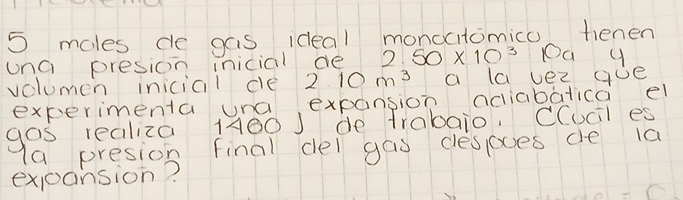 5 moles de gas ideal monoatómico tienen
una presión inicial de 2.50 x 10³ Pa y
volumen inicial de 2.10 m³ a la vez que
experimenta una expansión adiabática el
gas realiza 1480 J de trabajo. ¿Cuál es
la presión final del gas despoes de la
expansión?